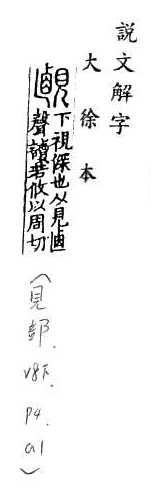 說文解字
大徐本
下視深也从見
聲讀若攸以周切
（見部．V8下．P4．a1）